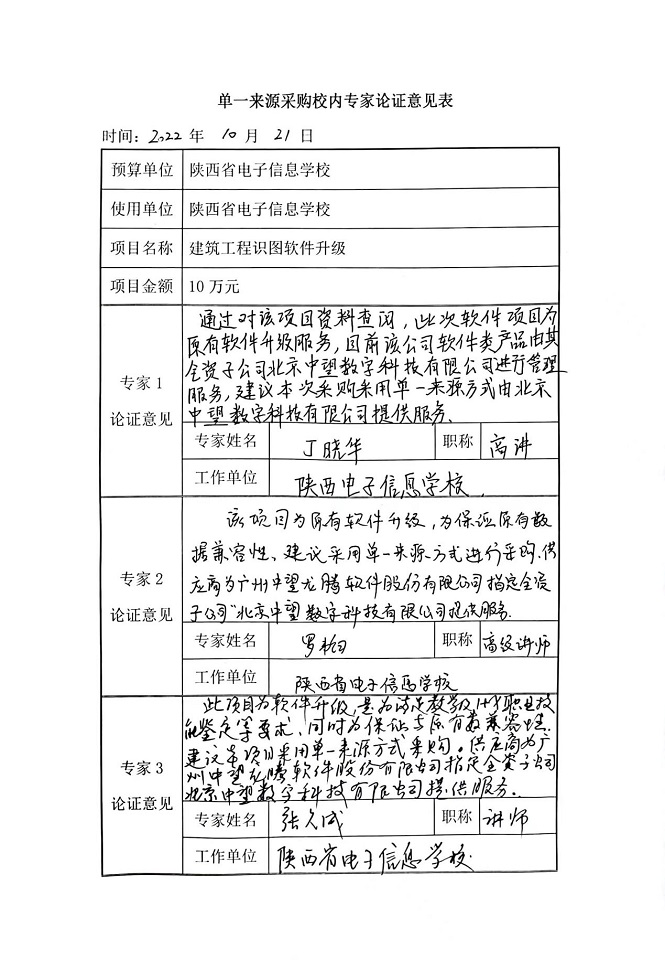 单一来源采购校内专家论证意见表
时间：2022 年 10 月 21 日
预算单位 陕西省电子信息学校
使用单位 陕西省电子信息学校
项目名称 建筑工程识图软件升级
项目金额 10 万元
专家 1
论证意见
通过对该项目资料查阅，此次软件项目为
原有软件升级服务，目前该公司软件类产品由其
全资子公司北京中望数字科技有限公司进行管理
服务，建议本次采购采用单一来源方式由北京
中望数字科技有限公司提供服务.
专家姓名 丁晓华 职称 高讲
工作单位 陕西电子信息学校.
专家 2
论证意见
该项目为原有软件升级，为保证原有数
据兼容性、建议采用单一来源方式进行采购.供
应商为广州中望龙腾软件股份有限公司指定全资
子公司“北京中望数字科技有限公司提供服务.
专家姓名 罗 职称 高级讲师
工作单位 陕西省电子信息学校
专家 3
论证意见
此项目为软件升级，是为满足教学、职业技
能鉴定等要求，同时为保证与原有数据兼容性.
建议本项目采用单一来源方式采购。供应商为广
州中望龙腾软件股份有限公司指定全资子公司
北京中望数字科技有限公司提供服务.
专家姓名 张久成 职称 讲师
工作单位 陕西省电子信息学校.